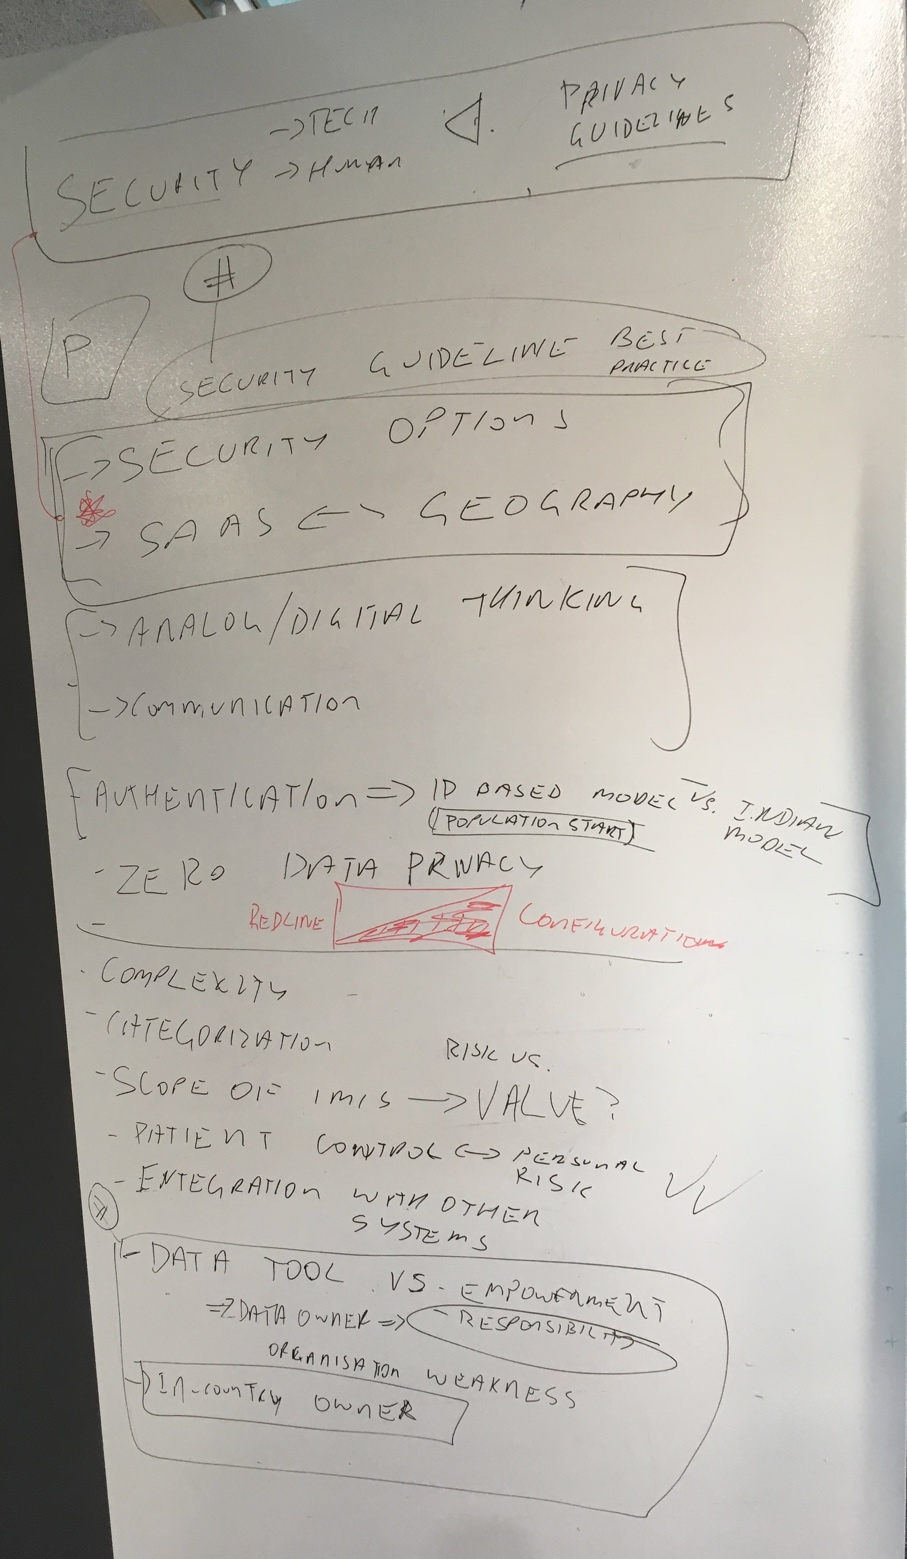 →TECH
PRIVACY
GUIDELINES
SECURITY →HUMAN
#
P
SECURITY GUIDELINE BEST
PRACTICE
→SECURITY OPTIONS
→ SAAS <-> GEOGRAPHY
→ANALOG/DIGITAL THINKING
→COMMUNICATION
AUTHENTICATION => ID BASED MODEL VS. INDIAN
MODEL
(POPULATION START)
- ZERO DATA PRIVACY
REDLINE CONFIGURATION
- COMPLEXITY
- CATEGORIZATION
RISK VS.
- SCOPE OF IMIS → VALUE?
- PATIENT CONTROL <-> PERSONAL
RISK
- ENTEGRATION WITH OTHER
SYSTEMS
- DATA TOOL VS. EMPOWERMENT
=> DATA OWNER => - RESPONSIBILITY
ORGANISATION WEAKNESS
→ IN-COUNTRY OWNER